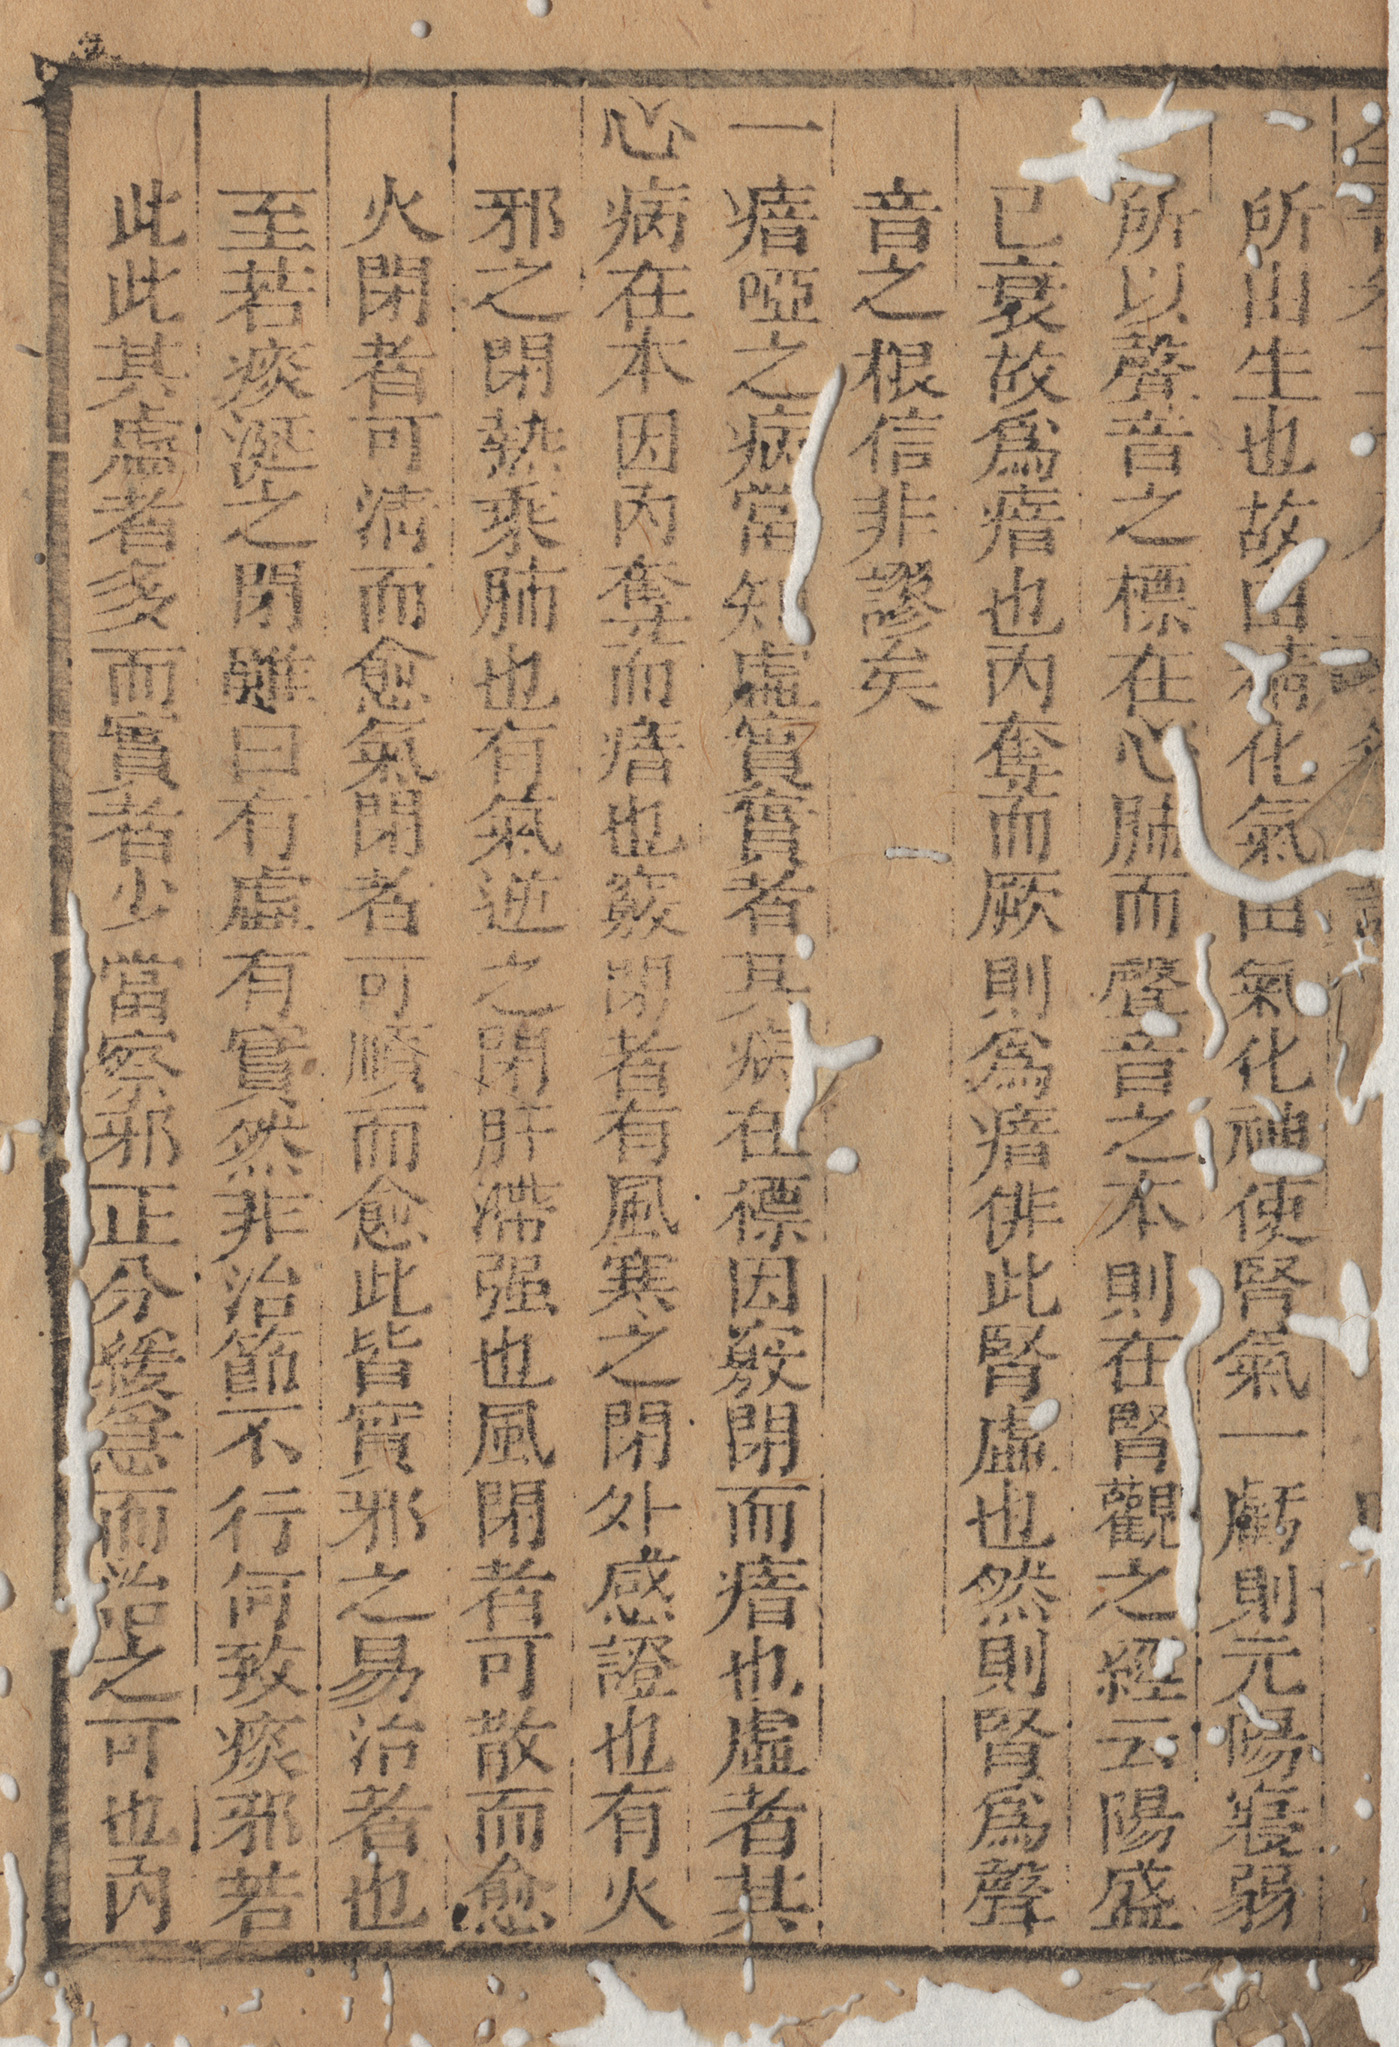 所由生也故由精化氣由氣化神使腎氣一虧則元陽寖弱
所以聲音之標在心肺而聲音之本則在腎觀之經云陽盛
已衰故爲瘖也內奪而厥則爲瘖俳此腎虛也然則腎爲聲
音之根信非謬矣
一瘖啞之病當知虛實實者其病在標因竅閉而瘖也虛者其
心病在本因內奪而瘖也竅閉者有風寒之閉外感證也有火
邪之閉熱乘肺也有氣逆之閉肝滯强也風閉者可散而愈
火閉者可清而愈氣閉者可順而愈此皆實邪之易治者也
至若痰涎之閉雖曰有虛有實然非治節不行何致痰邪若
此此其虛者多而實者少當察邪正分緩急而治之可也內